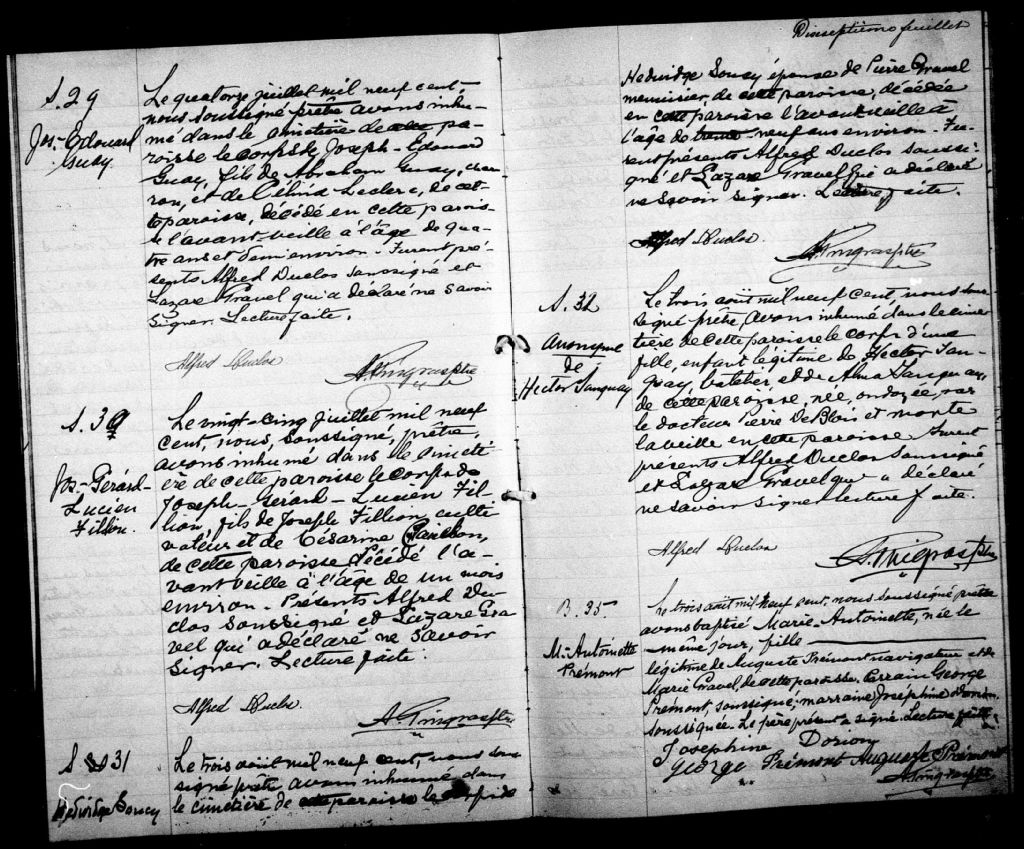 S. 29
Jos-Édouard
Guay
Le quatorze juillet mil neuf cent,
nous soussigné prêtre avons inhu-
mé dans le cimetière de pa-
roisse le corps de Joseph-Édouard
Guay, fils de Abraham Guay, char-
ron, et de Célina Leclerc, de cet-
te paroisse, décédé en cette parois-
se l'avant-veille à l'âge de qua-
tre ans et demi environ. Furent pré-
sents Alfred Duclos soussigné et
Lazare Gravel qui a déclaré ne savoir
signer. Lecture faite.
Alfred Duclos
A. Gingras ptre
S. 30
Jos-Gérard-
Lucien
Fillion
Le vingt-cinq juillet mil neuf
cent, nous, soussigné, prêtre,
avons inhumé dans le cimeti-
ère de cette paroisse le corps de
Joseph-Gérard-Lucien Fil-
lion, fils de Joseph Fillion, culti
vateur et de Césarine
de cette paroisse, décédé l'a-
vant veille à l'âge de un mois
environ. Présents Alfred Du-
clos soussigné et Lazare Gra-
vel qui a déclaré ne savoir
signer. Lecture faite.
Alfred Duclos
A. Gingras ptre
S 31
Hedwidge Soucy
Le trois août mil neuf cent, nous sous
signé prêtre avons inhumé dans
le cimetière de cette paroisse le corps de
Dixseptième feuillet
Hedwidge Soucy épouse de Pierre Gravel
meunisier, de cette paroisse, décédée
en cette paroisse l'avant veille à
l'âge de neuf ans environ. Fu-
rent présents Alfred Duclos soussi-
gné et Lazare Gravel qui a déclaré
ne savoir signer. Lecture faite.
Alfred Duclos
A. Gingras ptre
S. 32
Anonyme
de
Hector Tanguay
Le trois août mil neuf cent, nous sous
signé prêtre, avons inhumé dans le cime
tière de cette paroisse le corps d'une
fille, enfant légitime de Hector Tan-
guay, et de Alma Tanguay,
de cette paroisse, née, ondoyée, par
le docteur Pierre DeBlois et morte
la veille en cette paroisse. Furent
présents Alfred Duclos soussigné
et Lazare Gravel qui a déclaré
ne savoir signer lecture faite.
Alfred Duclos
A. Gingras ptre
B. 35
M-Antoinette
Prémont
Le trois août mil neuf cent, nous soussigné prêtre
avons baptisé Marie-Antoinette, née le
même jour, fille
légitime de Auguste Prémont navigateur et de
Marie Gravel, de cette paroisse. Parrain George
Prémont, soussigné; marraine Joséphine Dorion
soussignée. Le père présent a signé. Lecture faite.
Josephine Dorion
George Prémont Auguste Prémont
A. Gingras ptre